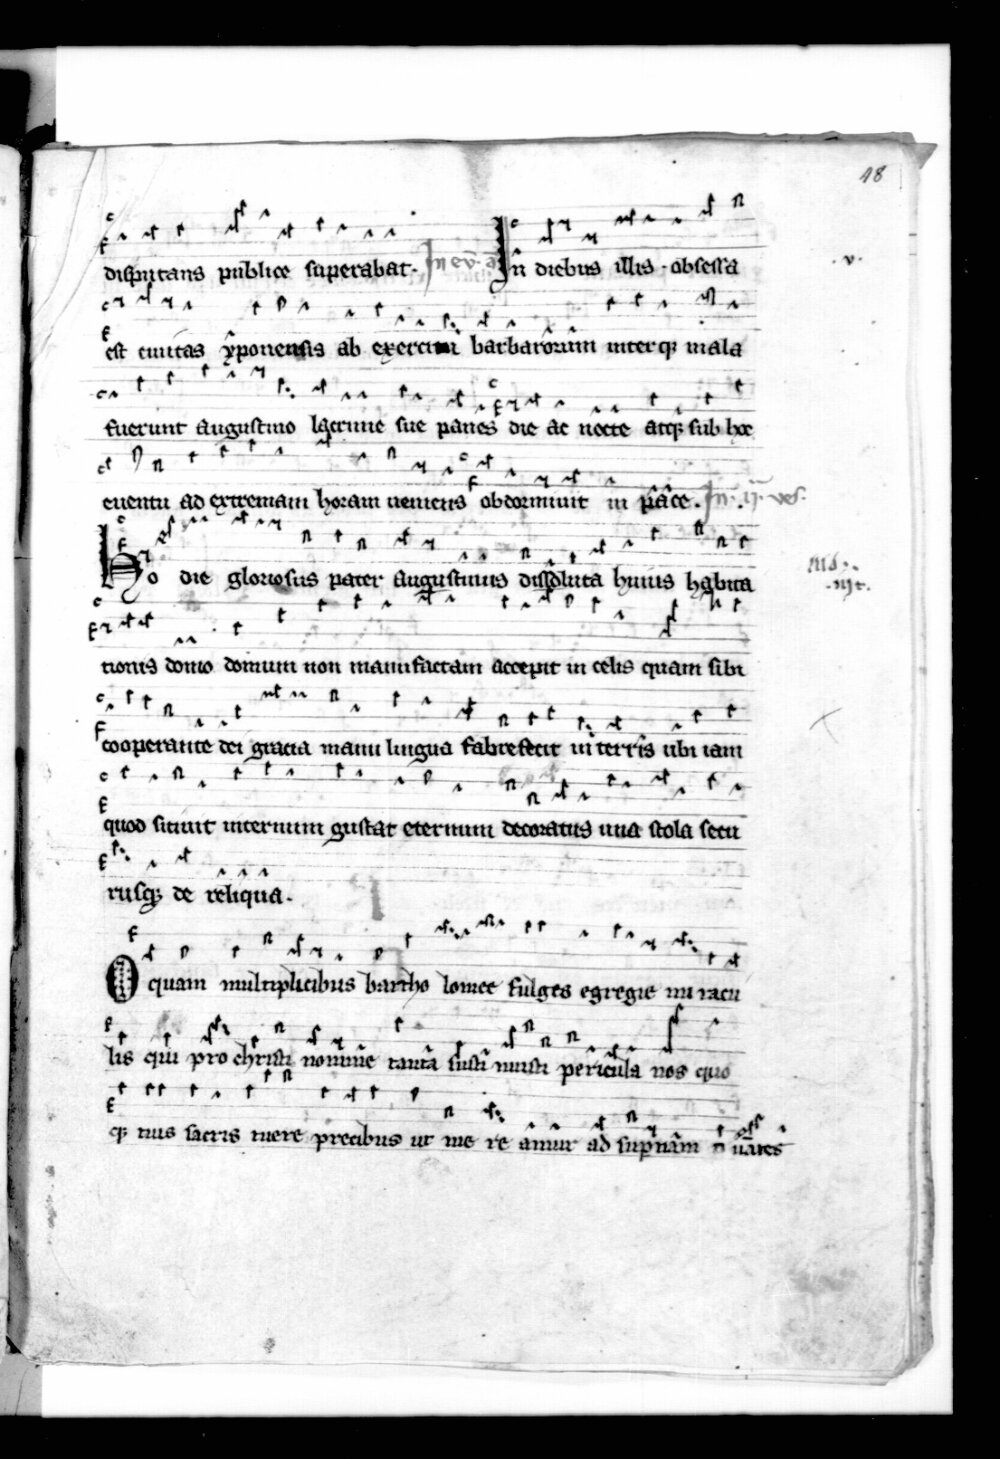 18
disputans publice superabat. In ev. a. In diebus illis. obsessa
.v.
est ciuitas yponensis ab exercitu barbarorum interq; mala
fuerunt augustino lacrime sue panes die ac nocte atq; sub hoc
euentu ad extremam horam ueniens obdormiuit in pace. In .ij. ves.
Ho die gloriosus pater Augustinus dissoluta huius habita
tionis domo domum non manufactam accepit in celis quam sibi
cooperante dei gracia manu lingua fabrefecit in terris ubi iam
quod sitiuit internum gustat eternum decoratus una stola secu
rusq; de reliqua.
O quam multiplicibus bartho lomee fulges egregie mi racu
lis qui pro christi nomine tanta susti nuisti pericula nos quo
q; tuis sacris tuere precibus ut me re amur ad supnam